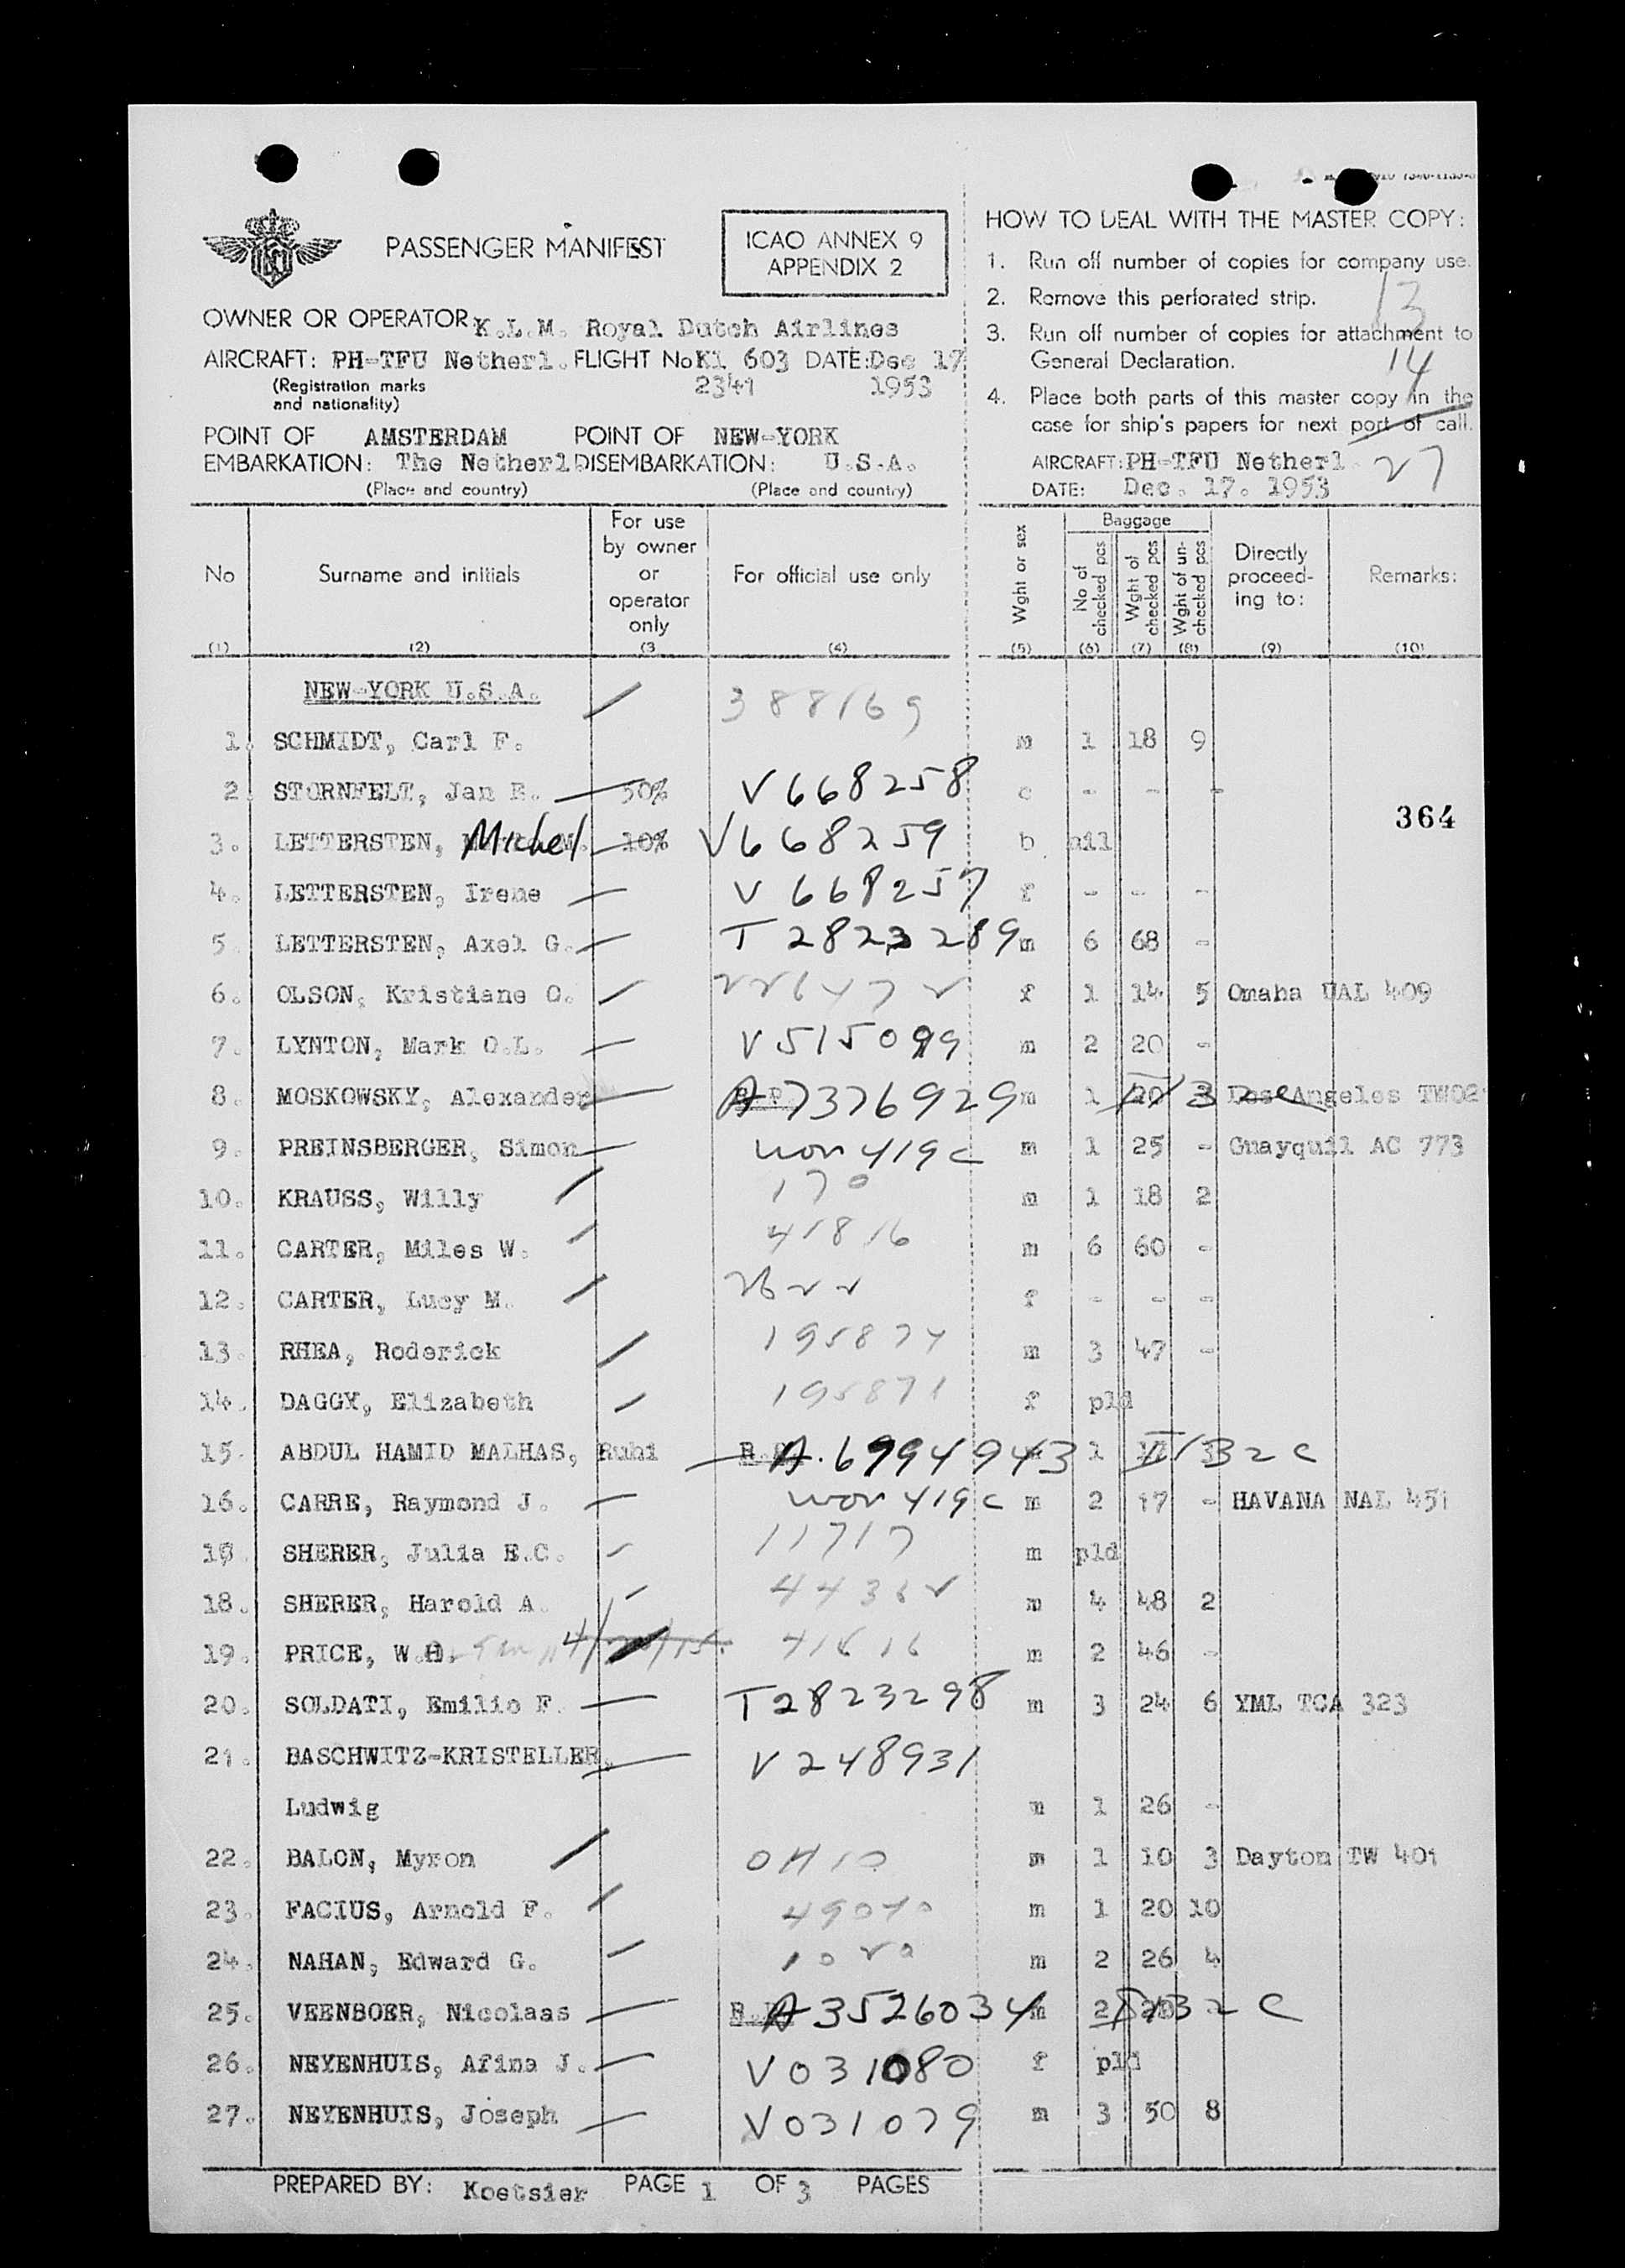 PASSENGER MANIFEST
ICAO ANNEX 9
APPENDIX 2
OWNER OR OPERATOR: K.L.M. Royal Dutch Airlines
AIRCRAFT: PH-TFU Netherl. FLIGHT No Kl 603 DATE: Dec 17
(Registration marks 2341 1953
and nationality)
POINT OF AMSTERDAM POINT OF NEW-YORK
EMBARKATION: The Netherl DISEMBARKATION: U.S.A.
(Place and country) (Place and country)
HOW TO DEAL WITH THE MASTER COPY:
1. Run off number of copies for company use.
2. Remove this perforated strip.
13
3. Run off number of copies for attachment to
General Declaration.
14
4. Place both parts of this master copy in the
case for ship's papers for next port of call.
AIRCRAFT: PH-TFU Netherl
27
DATE: Dec. 17. 1953
No Surname and initials For use by owner or operator only For official use only Wght or sex Baggage No of checked pcs Wght of checked pcs Wght of un-checked pcs Directly proceed-ing to: Remarks:
(1) (2) (3 (4) (5) (6) (7) (8) (9) (10)
NEW-YORK U.S.A. 388169
1. SCHMIDT, Carl F. m 1 18 9
2. STORNFELT, Jan E. 50% V668258 c - - -
364
3. LETTERSTEN, Michel 10% V668259 b nil
4. LETTERSTEN, Irene V 668257 f - - -
5 LETTERSTEN, Axel G. T 2823289 m 6 68 -
6. OLSON, Kristiane O. f 1 14 5 Omaha UAL 409
7. LYNTON, Mark O.L. V515099 m 2 20 -
8. MOSKOWSKY, Alexander A7376929 m 1 20 3 Los Angeles TW02
9. PREINSBERGER, Simon 419c m 1 25 - Guayquil AC 773
10. KRAUSS, Willy 170 m 1 18 2
11. CARTER, Miles W. 41816 m 6 60 -
12. CARTER, Lucy M. f - - -
13. RHEA, Roderick 195874 m 3 47 -
14. DAGGY, Elizabeth 195871 f pld
15. ABDUL HAMID MALHAS, Ruhi A.6994943 1
16. CARRE, Raymond J. 419c m 2 17 - HAVANA NAL 451
SHERER, Julia E.C. 11717 m pld
18. SHERER, Harold A. m 4 48 2
19. PRICE, W.H. m 2 46 -
20. SOLDATI, Emilio F. T2823298 m 3 24 6 YML TCA 323
21. BASCHWITZ-KRISTELLER, V 248931
Ludwig m 1 26 -
22. BALON, Myron OHIO m 1 10 3 Dayton TW 401
23. FACIUS, Arnold F. m 1 20 10
24. NAHAN, Edward G. m 2 26 4
25. VEENBOER, Nicolaas A3526034 m 2
26. NEYENHUIS, Afina J. V031080 f pld
27. NEYENHUIS, Joseph V031079 m 3 50 8
PREPARED BY: Koetsier PAGE 1 OF 3 PAGES